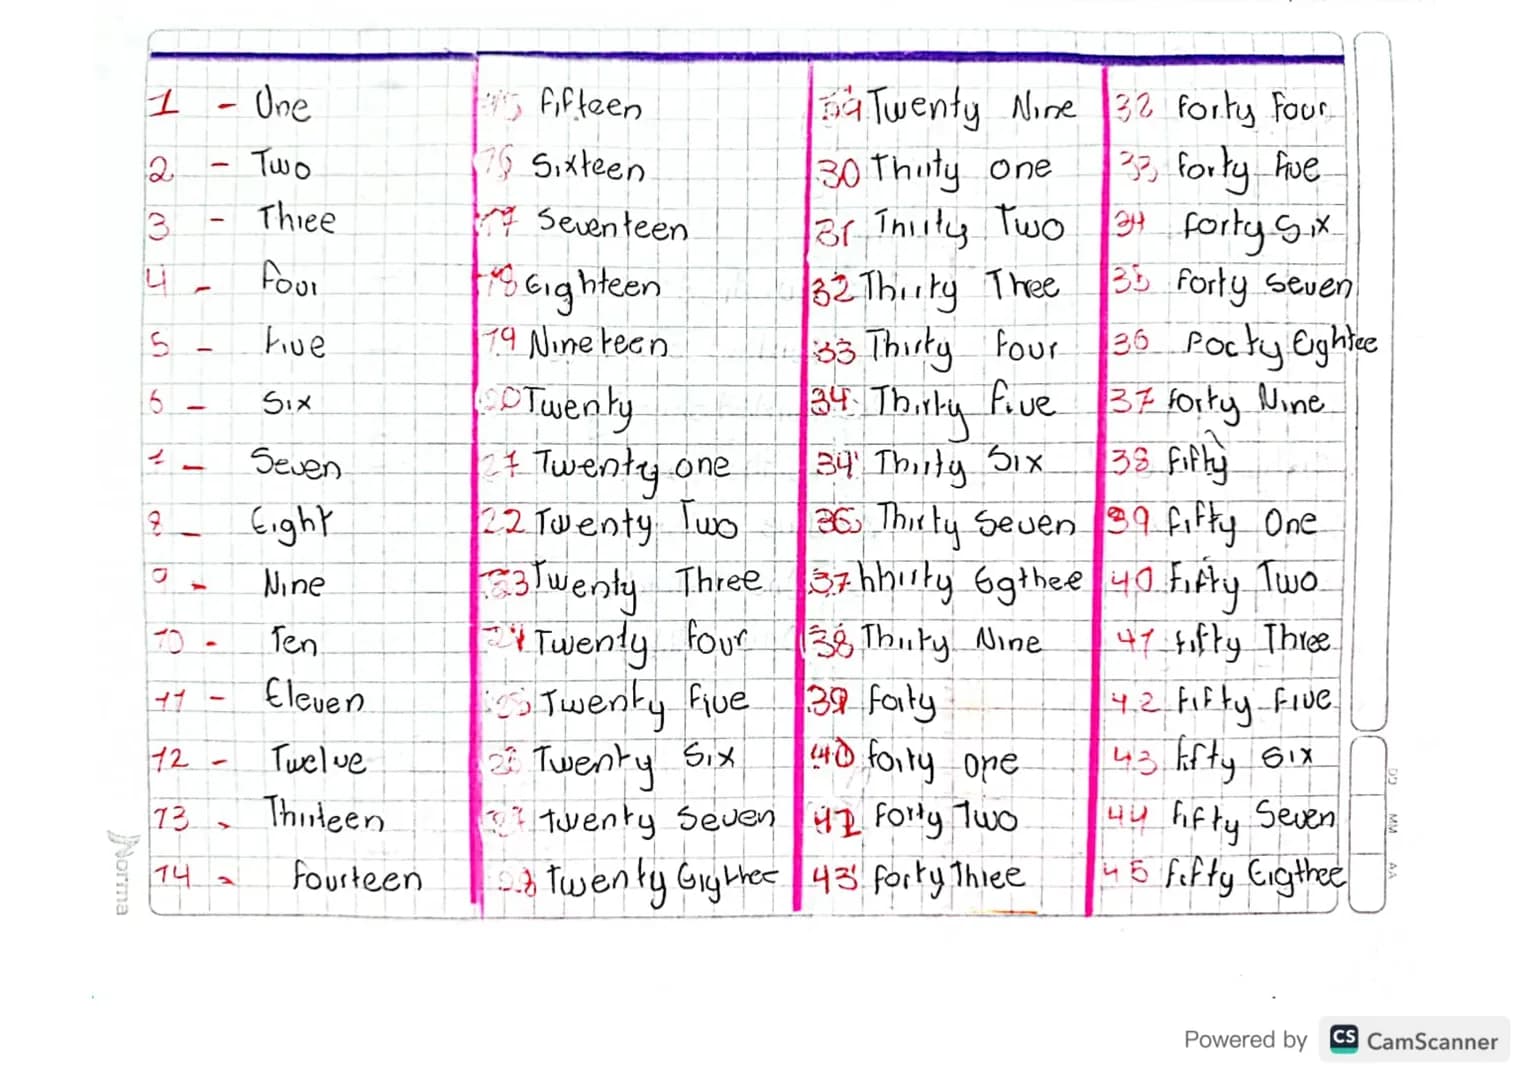 1 - One
2 - Two
3 - Three
4 - Four
5 - Five
6 - Six
- Seven
8 - Eight
9 - Nine
10 - Ten
11 - Eleven
12 - Twelve
13 - Thirteen
14 - fourteen
15 fifteen
16 Sixteen
17 Seventeen
18 Eighteen
19 Nineteen
20 Twenty
21 Twenty one
22 Twenty Two
23 Twenty Three
24 Twenty four
25 Twenty Five
26 Twenty Six
27 twenty Seven
28 twenty Gigthee
29 Twenty Nine
30 Thirty one
31 Thirty Two
32 Thirty Three
33 Thirty four
34 Thirty five
34 Thirty Six
36 Thirty Seven
37 hhirty Egthee
38 Thirty Nine
39 forty
40 forty one
42 forty Two
43 forty Three
32 forty four
33 forty five
34 forty Six
35 forty seven
36 focty Eightee
37 forty Nine
38 fifty
39 fifty One
40 Fifty Two
41 fifty Three
42 fifty Five
43 fifty six
44 fifty Seven
45 fifty Eigthee
Norma
DD MM AA
Powered by CS CamScanner